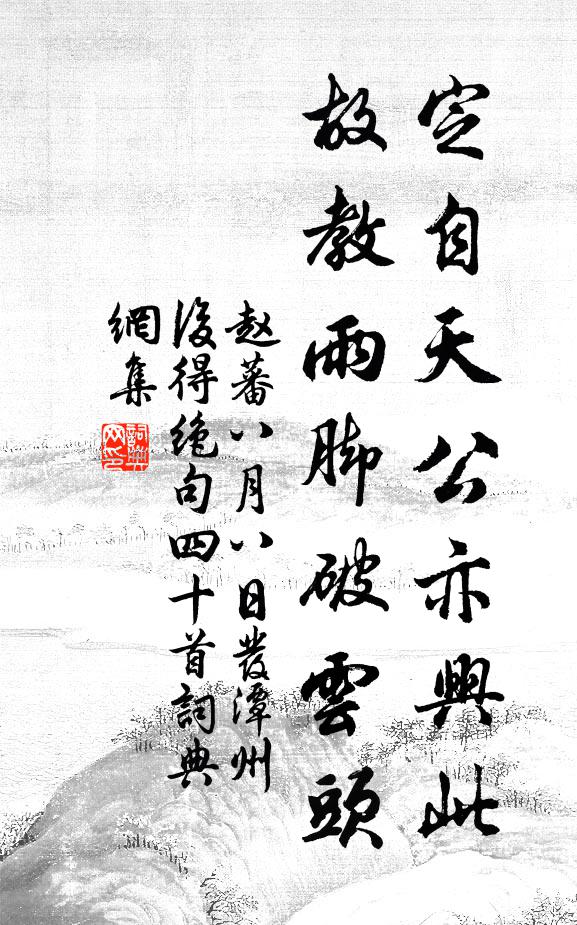 定自天公亦興此
故教雨脚破雲頭
赵蕃八月八日發潭州
後得绝句四十首詞典
網集